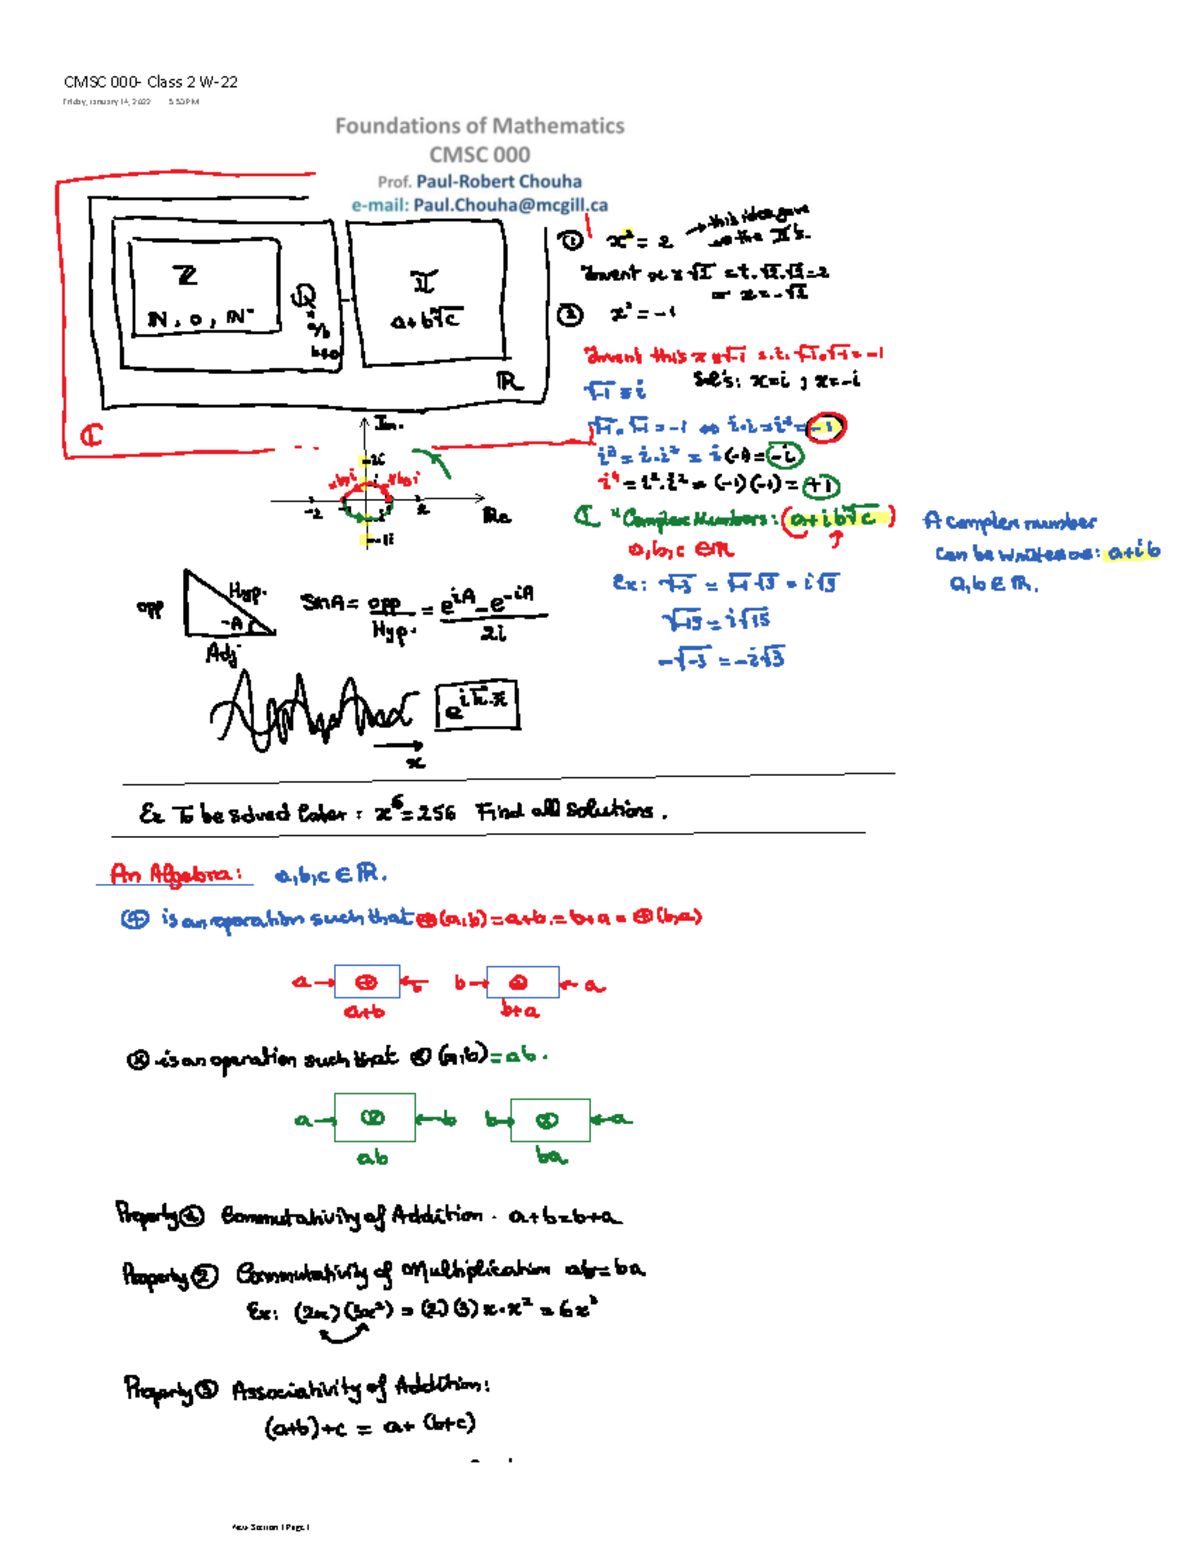 CMSC 000- Class 2 W-22
Friday, January 14, 2022 5:50 PM
Foundations of Mathematics
CMSC 000
Prof. Paul-Robert Chouha
e-mail: Paul.Chouha@mcgill.ca
ℤ
ℕ, 0, ℕ⁻
ℚ
a/b
b≠0
𝕀
a+b√c
ℝ
ℂ
① x² = 2 → this idea gave us the 𝕀's.
Invent x = √2 s.t. √2.√2=2
or x = -√2
② x² = -1
Invent this x=√-1 s.t. √-1.√-1 = -1
Sol's: x=i ; x=-i
√-1 = i
√-1.√-1 = -1 ⇔ i.i = i² = -1
i³ = i.i² = i(-1) = -i
i⁴ = i².i² = (-1)(-1) = +1
Im.
2i
-2
2
Re
ℂ "Complex Numbers: (a+ib√c)
a,b,c ∈ ℝ
A complex number
can be written as: a+ib
a,b ∈ ℝ.
Ex: √-3 = √-1 √3 = i√3
√-15 = i√15
-√-3 = -i√3
opp
Hyp.
A
Adj
sinA = opp/Hyp. = (e^{iA} - e^{-iA})/2i
e^{ik.x}
x
Ex To be solved later: x⁶=256 Find all solutions.
An Algebra: a,b,c ∈ ℝ.
⊕ is an operation such that ⊕(a,b) = a+b = b+a = ⊕(b,a)
a → ⊕ ← b b → ⊕ ← a
a+b b+a
⊗ is an operation such that ⊗(a,b) = ab.
a → ⊗ ← b b → ⊗ ← a
ab ba
Property ① Commutativity of Addition. a+b=b+a
Property ② Commutativity of Multiplication ab=ba
Ex: (2x)(3x²) = (2)(3)x.x² = 6x³
Property ③ Associativity of Addition:
(a+b)+c = a+(b+c)
New Section 1 Page 1